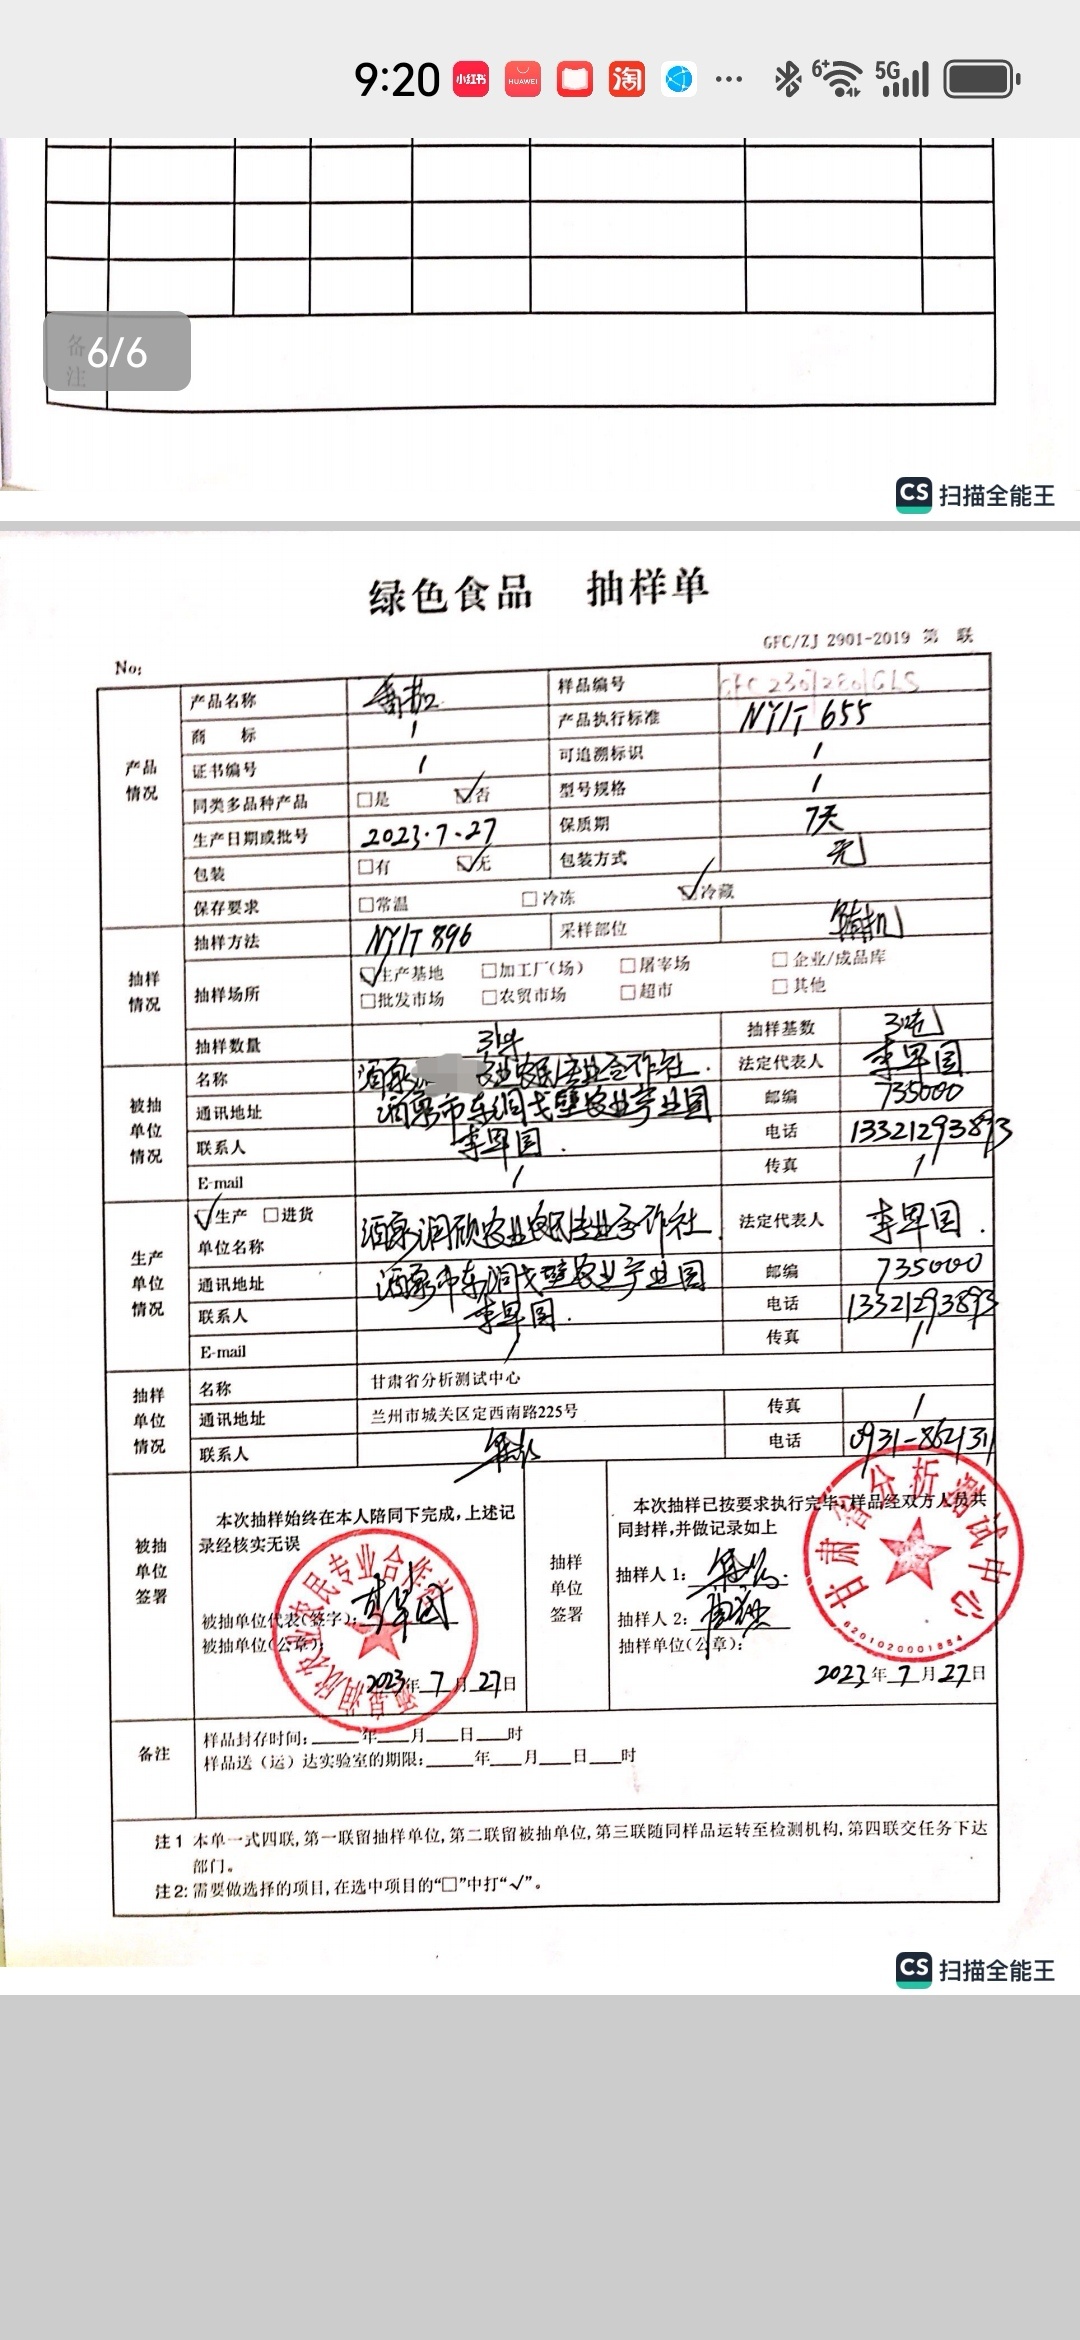 9:20 小红书 HUAWEI 淘 ... 6+ 5G
备注
6/6
CS 扫描全能王
绿色食品 抽样单
GFC/ZJ 2901-2019 第 联
No:
产品情况
产品名称 番茄 样品编号 GFC 23012801GLS
商 标 / 产品执行标准 NY/T 655
证书编号 / 可追溯标识 /
同类多品种产品 □是 ☑否 型号规格 /
生产日期或批号 2023.7.27 保质期 7天
包装 □有 ☑无 包装方式 无
保存要求 □常温 □冷冻 ☑冷藏
抽样情况
抽样方法 NY/T 896 采样部位 随机
抽样场所 ☑生产基地 □加工厂(场) □屠宰场 □企业/成品库
□批发市场 □农贸市场 □超市 □其他
抽样数量 抽样基数 3吨
被抽单位情况
名称 酒泉 农业农民专业合作社. 法定代表人
通讯地址 酒泉市东洞戈壁农业产业园 邮编 735000
联系人 电话 13321293893
E-mail / 传真 /
生产单位情况
☑生产 □进货
单位名称 酒泉润欣农业农民专业合作社. 法定代表人
通讯地址 酒泉市东洞戈壁农业产业园 邮编 735000
联系人 电话 13321293893
E-mail / 传真 /
抽样单位情况
名称 甘肃省分析测试中心
通讯地址 兰州市城关区定西南路225号 传真 /
联系人 电话 0931-862131
被抽单位签署
本次抽样始终在本人陪同下完成,上述记
录经核实无误
被抽单位代表(签字):
被抽单位(公章):
2023年7月27日
润欣农业农民专业合作社
抽样单位签署
本次抽样已按要求执行完毕,样品经双方人员共
同封样,并做记录如上
抽样人1:
抽样人2:
抽样单位(公章):
2023年7月27日
甘肃省分析测试中心
6201020001884
备注
样品封存时间:____年__月__日__时
样品送(运)达实验室的期限:____年__月__日__时
注1 本单一式四联,第一联留抽样单位,第二联留被抽单位,第三联随同样品运转至检测机构,第四联交任务下达
部门。
注2:需要做选择的项目,在选中项目的“□”中打“√”。
CS 扫描全能王